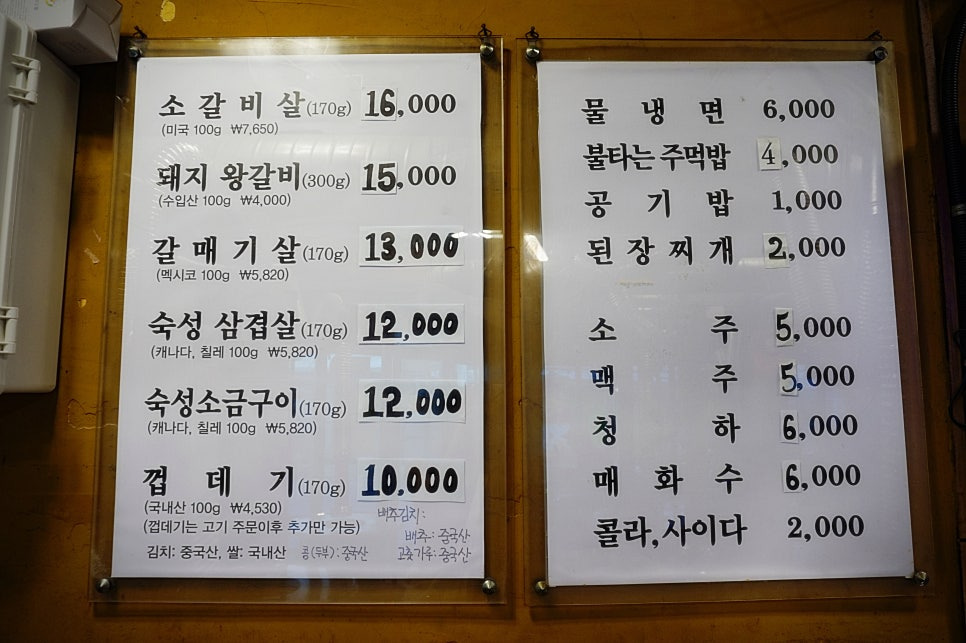 소갈비살(170g) 16,000
(미국 100g ₩7,650)
돼지 왕갈비(300g) 15,000
(수입산 100g ₩4,000)
갈매기살(170g) 13,000
(멕시코 100g ₩5,820)
숙성 삼겹살(170g) 12,000
(캐나다, 칠레 100g ₩5,820)
숙성소금구이(170g) 12,000
(캐나다, 칠레 100g ₩5,820)
껍데기(170g) 10,000
(국내산 100g ₩4,530)
(껍데기는 고기 주문이후 추가만 가능)
배추김치:
배추: 중국산
김치: 중국산, 쌀: 국내산 콩(두부): 중국산 고춧가루: 중국산
물냉면 6,000
불타는주먹밥 4,000
공기밥 1,000
된장찌개 2,000
소주 5,000
맥주 5,000
청하 6,000
매화수 6,000
콜라,사이다 2,000